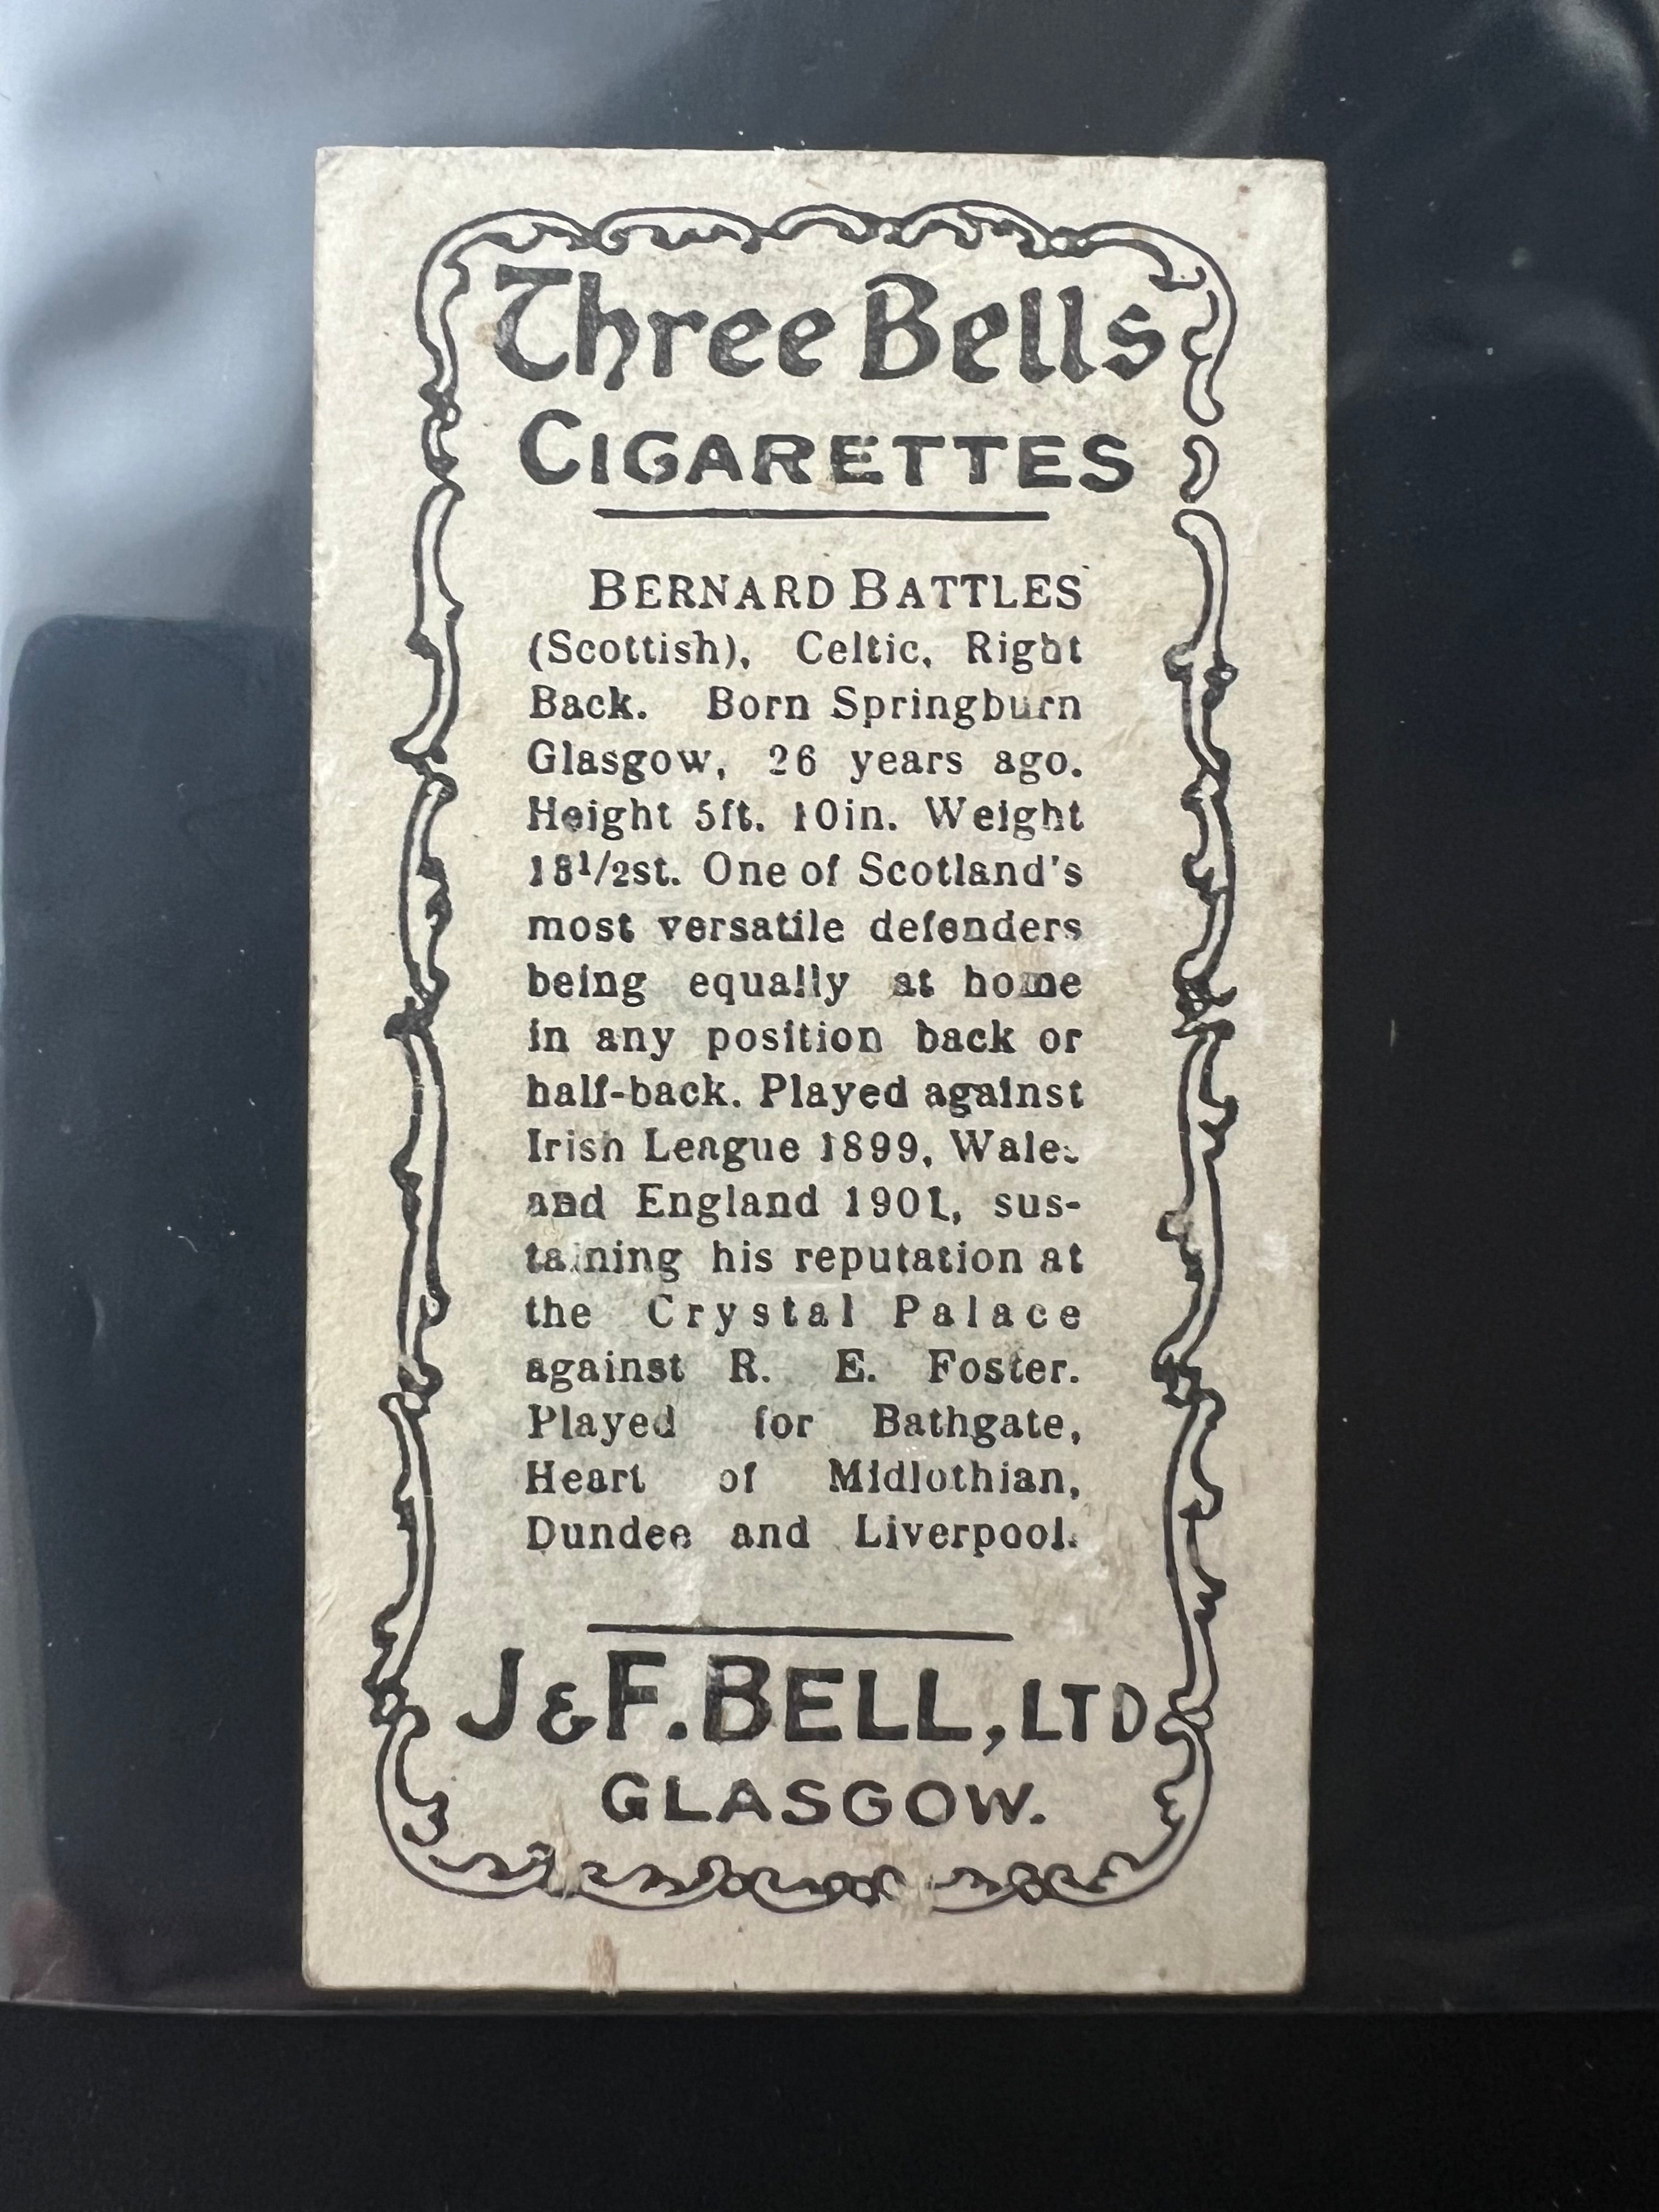 Three Bells
CIGARETTES
BERNARD BATTLES
(Scottish), Celtic, Right
Back. Born Springburn
Glasgow, 26 years ago.
Height 5ft. 10in. Weight
13½st. One of Scotland's
most versatile defenders
being equally at home
in any position back or
half-back. Played against
Irish League 1899, Wales
and England 1901, sus-
taining his reputation at
the Crystal Palace
against R. E. Foster.
Played for Bathgate,
Heart of Midlothian,
Dundee and Liverpool.
J & F. BELL, LTD
GLASGOW.